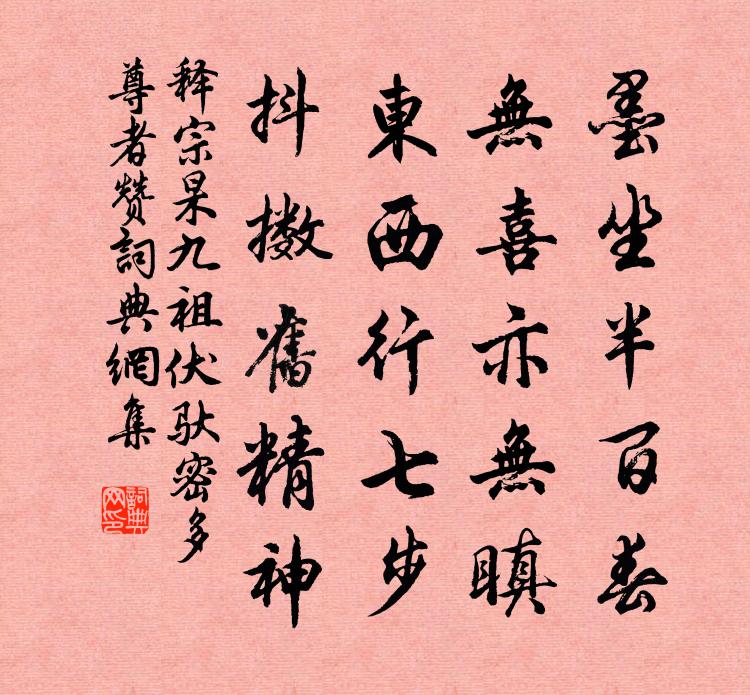 墨坐半百春
無喜亦無瞋
東西行七步
抖擻舊精神
释宗杲九祖伏驮密多
尊者赞詞典網集
詞典网印